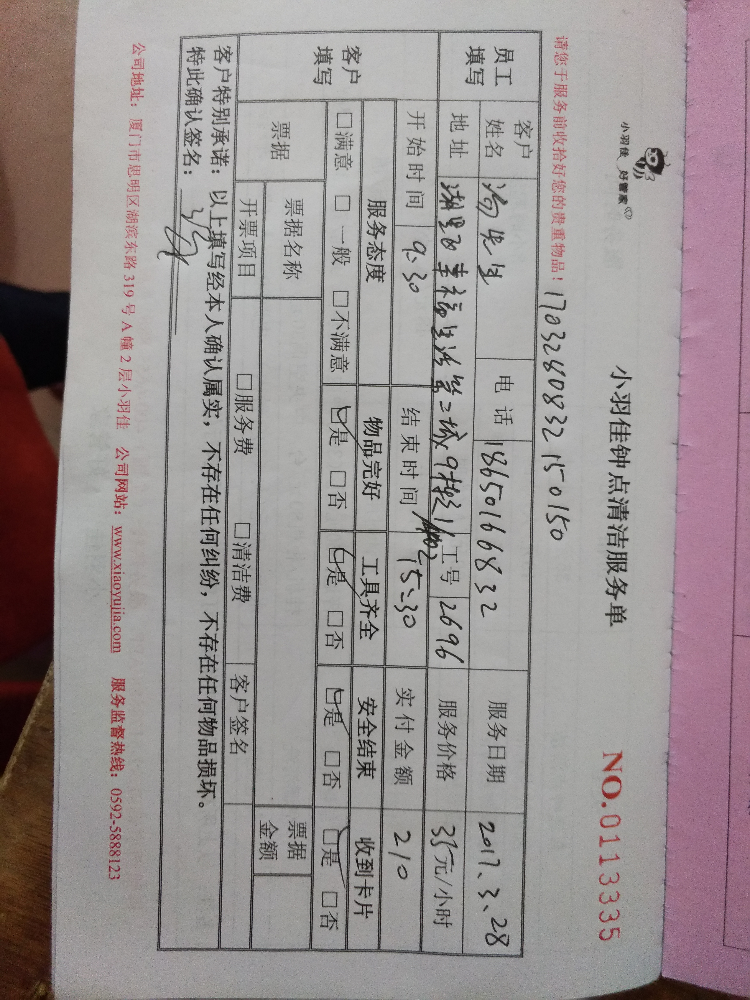 小羽佳 好管家
小羽佳钟点清洁服务单
NO.0113335
请您于服务前收拾好您的贵重物品！
17032840832 150150
员工填写
客户姓名 先生 电话 18650166832 服务日期 2017.3.28
地址 幸福生活 二城9楼 1602 工号 2696 服务价格 35元/小时
客户填写
开始时间 9:30 结束时间 15:30 实付金额 210
服务态度 物品完好 工具齐全 安全结束 收到卡片
□满意 □一般 □不满意 □是 □否 □是 □否 □是 □否 □是 □否
票据 票据名称 票据金额
开票项目 □服务费 □清洁费 客户签名
客户特别承诺：以上填写经本人确认属实，不存在任何纠纷，不存在任何物品损坏。
特此确认签名：
公司地址：厦门市思明区湖滨东路319号A幢2层小羽佳 公司网站：www.xiaoyujia.com 服务监督热线：0592-5888123